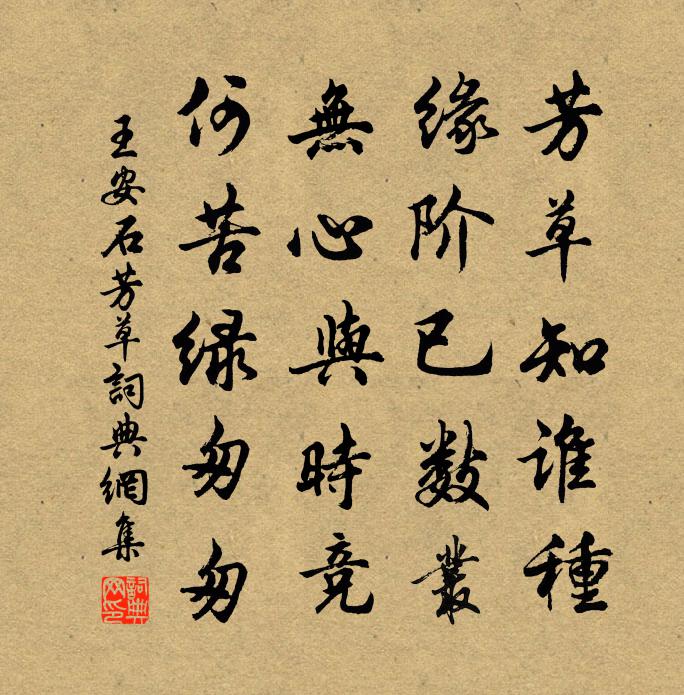 芳草知谁種
緣阶已数叢
無心與時竞
何苦绿匆匆
王安石芳草詞典網集
詞典网印